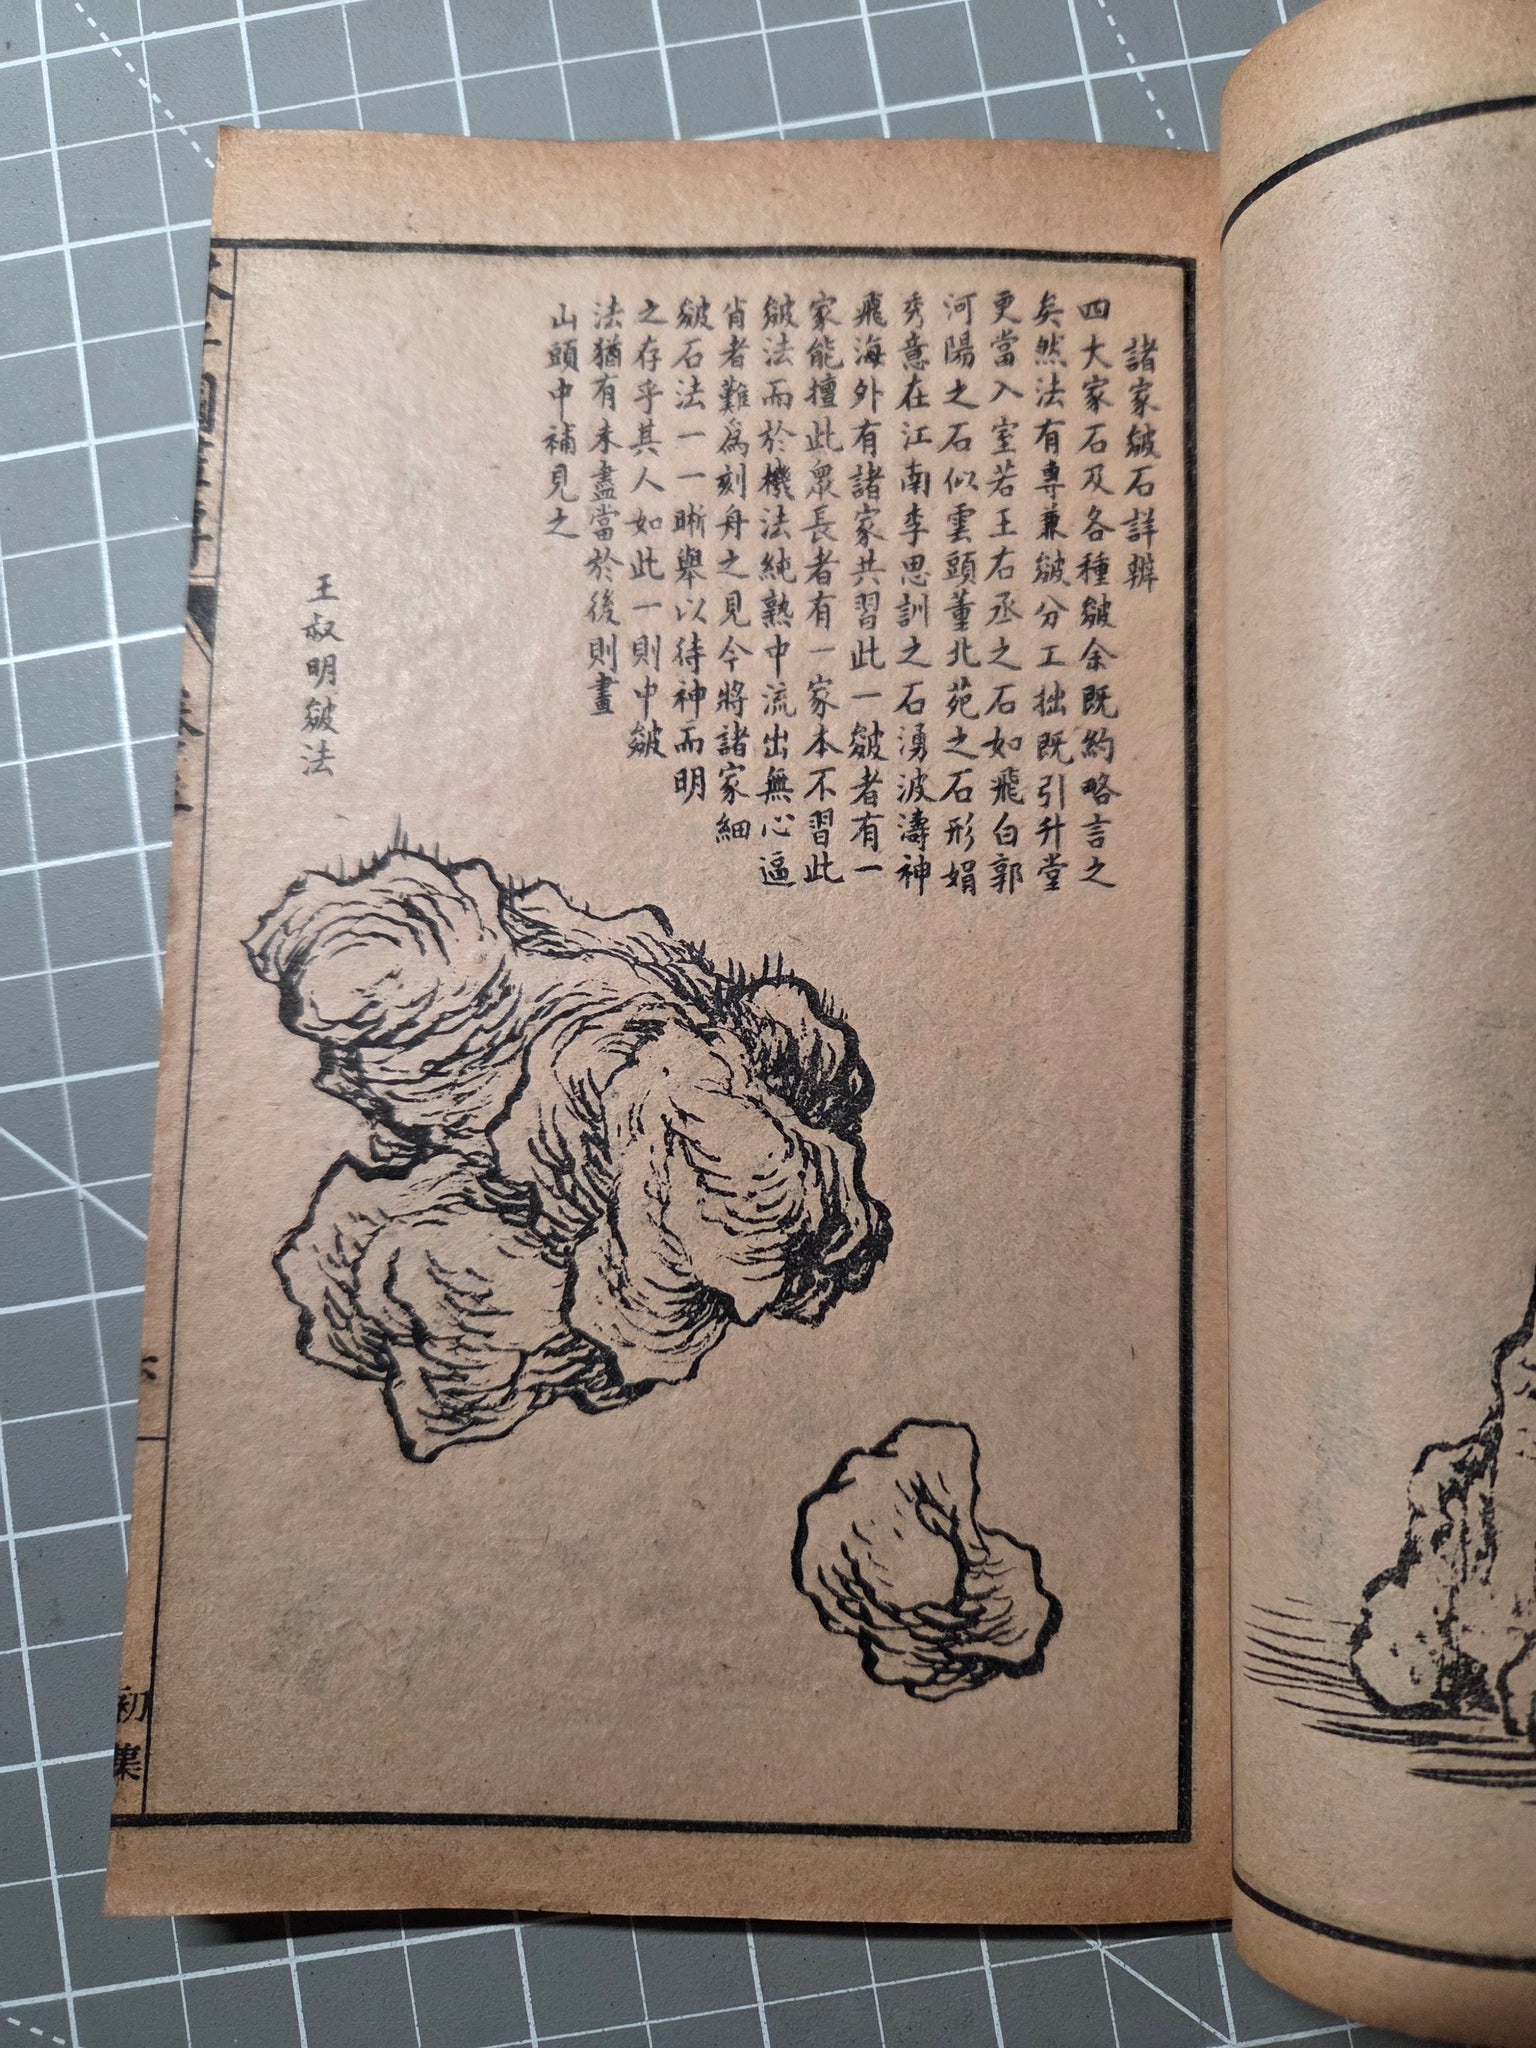 諸家皴石詳辨
四大家石及各種皴余既約略言之
矣然法有專兼皴分工拙既引升堂
更當入室若王右丞之石如飛白郭
河陽之石似雲頭董北苑之石形娟
秀意在江南李思訓之石湧波濤神
飛海外有諸家共習此一皴者有一
家能擅此眾長者有一家本不習此
皴法而於機法純熟中流出無心逼
肖者難為刻舟之見今將諸家細
皴石法一一晰舉以待神而明
之存乎其人如此一則中皴
法猶有未盡當於後則畫
山頭中補見之
王叔明皴法
初集